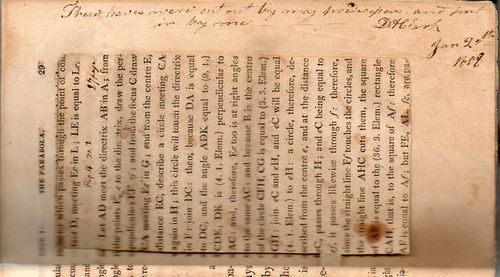 These leaves were cut out by my predecessor, and put
in by me
D H Clark
Jan 2nd
THE PARABOLA. 29
diameter which passes through the point of con-
tact D, meeting Ee in L; LE is equal to Le.
Fig. 4 n. 1
Let AD meet the directrix AB in A; from
the points E, e to the directrix, draw the per-
pendiculars EF, ef; and from the focus C draw
CA meeting Ee in G; and from the centre E,
distance EC, describe a circle meeting CA
again in H; this circle will touch the directrix
in F: join DC: then, because DA is equal
to DC, and the angle ADK equal to (9. 1.)
CDK, DK is (4. 1. Elem.) perpendicular to
AC; and, therefore, Ee too is at right angles
to the same AC: and because E is the centre
of the circle CFH, CG is equal to (3. 3. Elem.)
GH: join eC and eH, and eC will be equal
(4. 1. Elem.) to eH: a circle, therefore, de-
scribed from the centre e, and at the distance
eC, passes through H; and eC being equal to
ef, it passes likewise through f: therefore,
since the straight line Ff touches the circles, and
the straight line AHC cuts them, the square
of AF is equal to the (36. 3. Elem.) rectangle
CAH, that is, to the square of Af: therefore
AF is equal to Af; but FE, AL, fe, are pa-